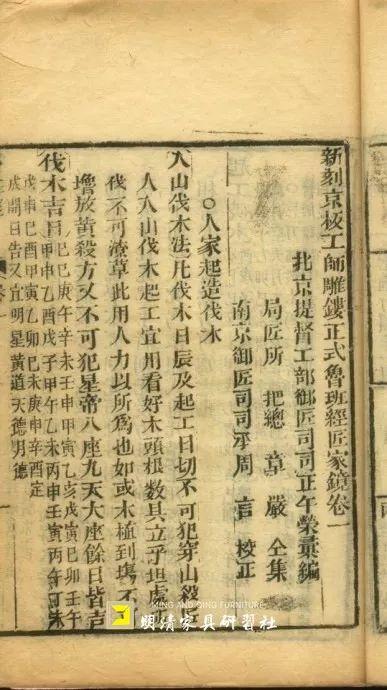 新刻京板工師雕鏤正式魯班經匠家鏡卷一
北京提督工部御匠司司正午榮彙編
局匠所 把總 章嚴 仝集
南京御匠司司承周言校正
○人家起造伐木
入山伐木法凡伐木日辰及起工日切不可犯穿山殺匠
人入山伐木起工宜用看好木頭根數具立平坦處
伐不可潦草此用人力以所為也如或木植到塲不
放黃殺方又不可犯星帝八座九天大座餘日皆吉
伐木吉日己巳庚午辛未壬申甲寅乙亥戊寅己卯壬午
甲申乙酉戊子甲午乙未丙申壬寅丙午丁未
戊申己酉甲寅乙卯己未庚申辛酉定
開日吉又宜明星黃道天德月德
MING AND QING FURNITURE
明清家具研習社